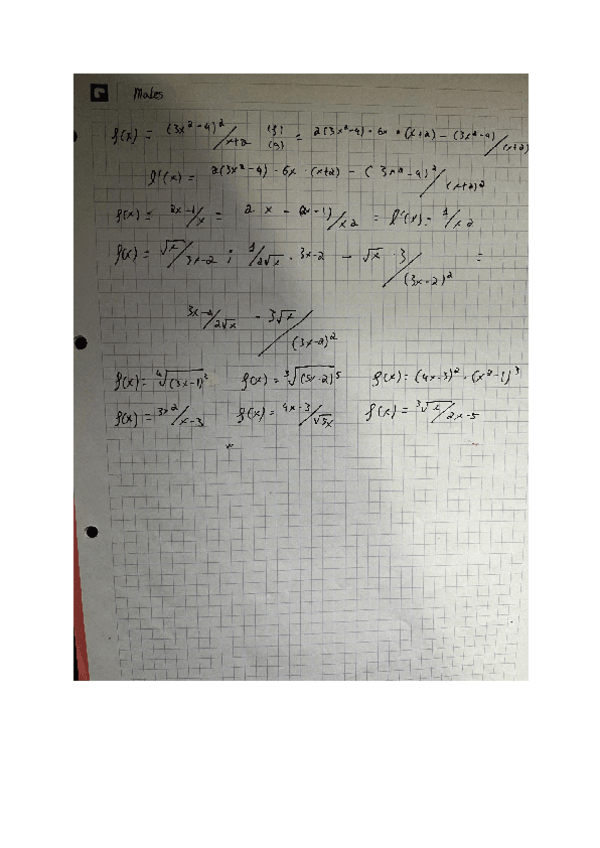 Mates
f(x) = (3x²-4)²/x+2 (f)/(g) = 2(3x²-4)·6x·(x+2) - (3x²-4)/(x+2)
f'(x) = 2(3x²-4)·6x·(x+2) - (3x²-4)²/(x+2)²
f(x) = 2x-1/x = 2x-(2x-1)/x2 = f'(x) = 1/x2
f(x) = √x/3x-2 ; 1/2√x · 3x-2 - √x · 3/(3x-2)² =
3x-2/2√x - 3√x/(3x-2)²
f(x) = ⁴√(3x-1)³ f(x) = ³√(5x-2)⁵ f(x) = (4x-3)²·(x²-1)³
f(x) = 3x²/x-3 f(x) = 4x-3/√5x f(x) = ³√x/2x-5